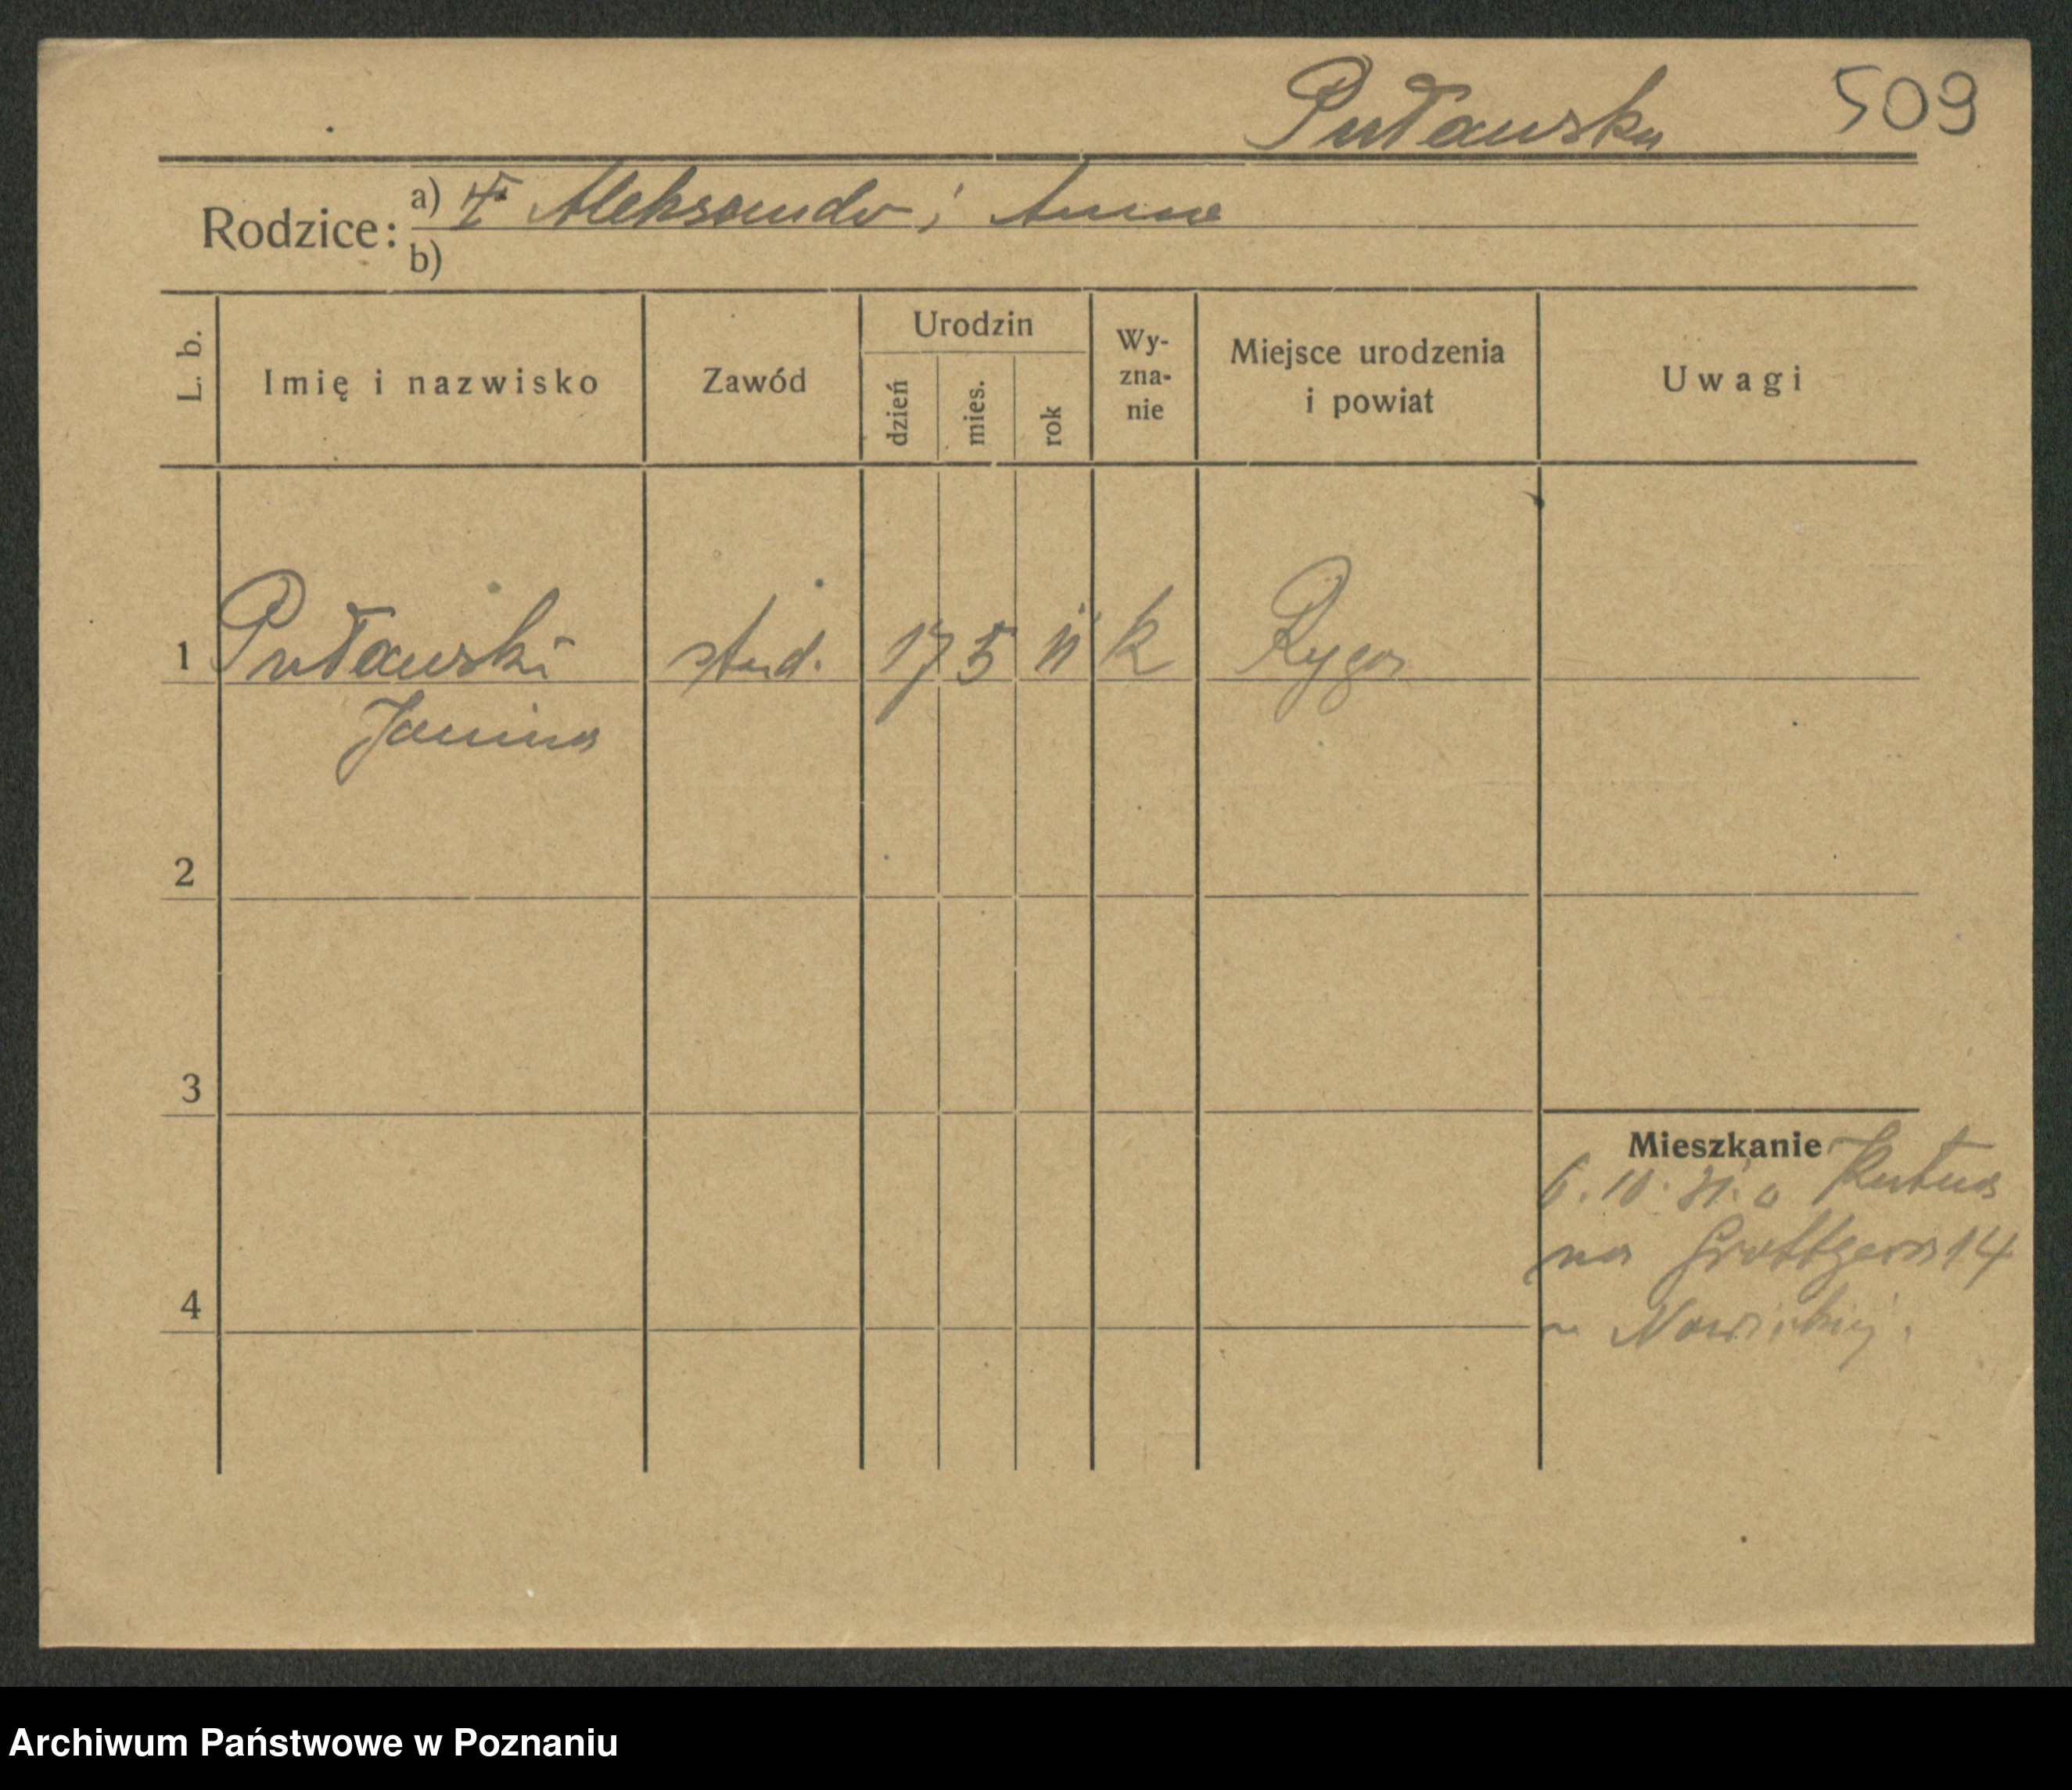 Pułaska 509
Rodzice: a) Aleksander i Anna
b)
L. b. Imię i nazwisko Zawód Urodzin dzień mies. rok Wy-zna-nie Miejsce urodzenia i powiat Uwagi
1 Pułaski stud. 17 5 11 k Ryga
Janina
2
3
Mieszkanie
6. 10. 31. Kutna
na Grottgera 14
4
u Nowickiej.
Archiwum Państwowe w Poznaniu